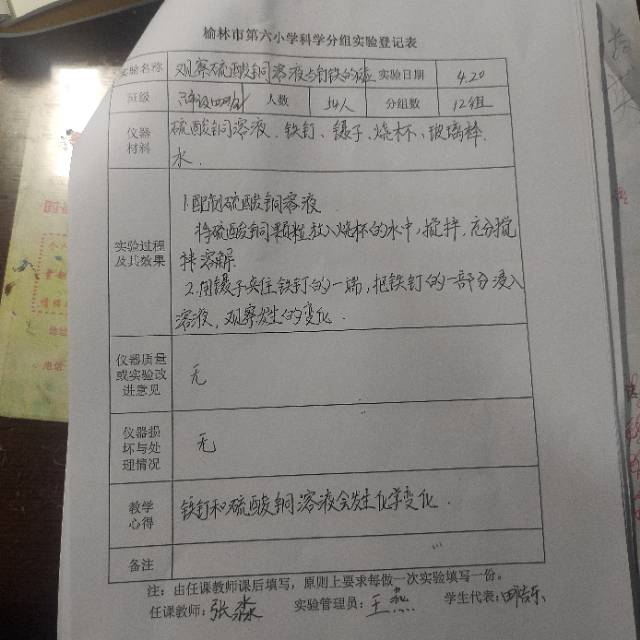 榆林市第六小学科学分组实验登记表
实验名称 观察硫酸铜溶液与铁钉的 实验日期 4.20
班级 人数 54人 分组数 12组
仪器材料 硫酸铜溶液、铁钉、镊子、烧杯、玻璃棒、
水.
实验过程及其效果
1.配制硫酸铜溶液
将硫酸铜颗粒放入烧杯的水中,搅拌,充分搅
拌溶解
2.用镊子夹住铁钉的一端,把铁钉的一部分浸入
溶液,观察发生的变化.
仪器质量或实验改进意见 无
仪器损坏与处理情况 无
教学心得 铁钉和硫酸铜溶液会发生化学变化.
备注
注:由任课教师课后填写,原则上要求每做一次实验填写一份。
任课教师:张淼 实验管理员:王 学生代表: